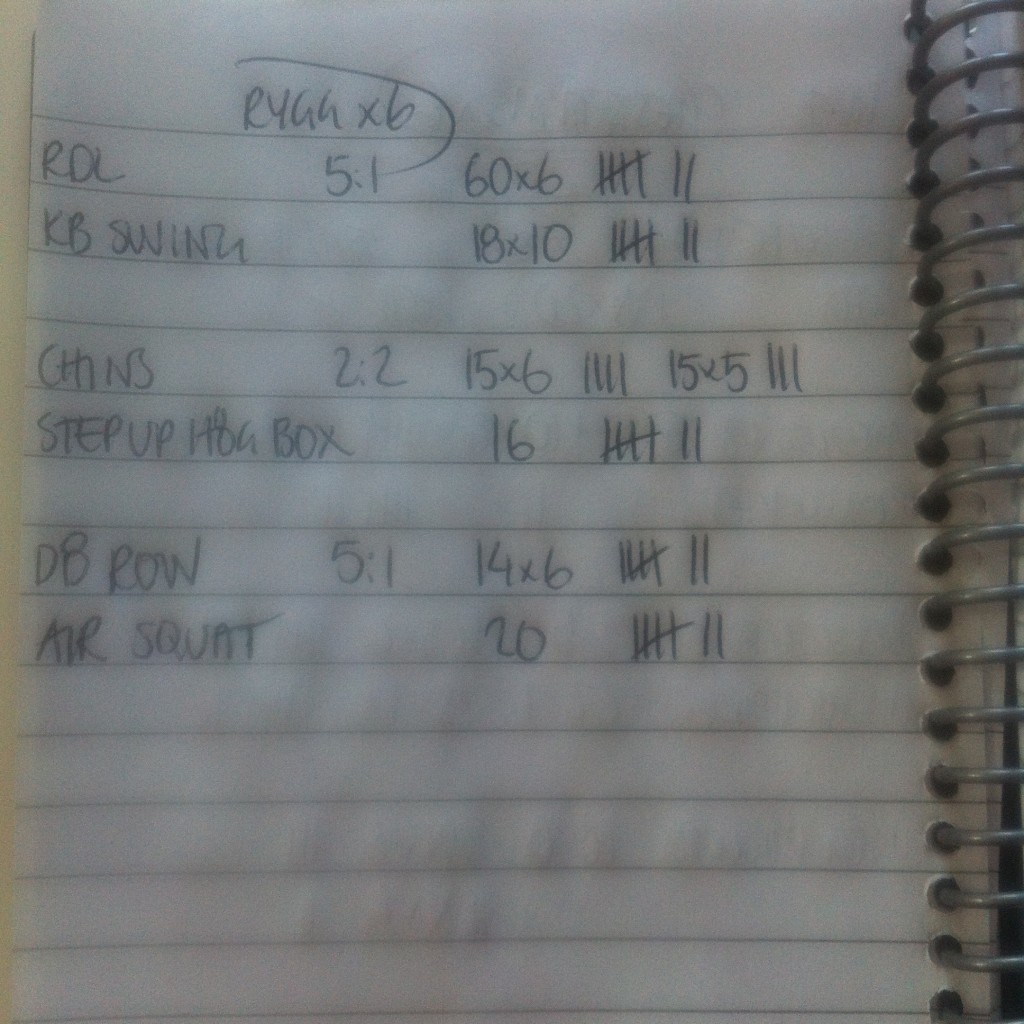 RYGG x6
RDL 5:1 60x6 |||| ||
KB SWING 18x10 |||| ||
CHINS 2:2 15x6 |||| 15x5 |||
STEP UP HÖG BOX 16 |||| ||
DB ROW 5:1 14x6 |||| ||
AIR SQUAT 20 |||| ||